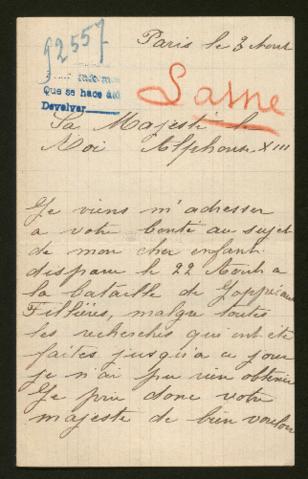 92557
Paris le 3 Aout
Que se hace
Devolver
Lasne
Sa Majesté le
Roi Alphonse XIII
Je viens m'adresser
a votre bonté au sujet
de mon cher enfant
disparu le 22 Aout a
la bataille de
Fillières, malgre toutes
les recherches qui ont été
faites jusqu'a ce jour
je n'ai pu rien obtenir
Je prie donc votre
majesté de bien vouloir